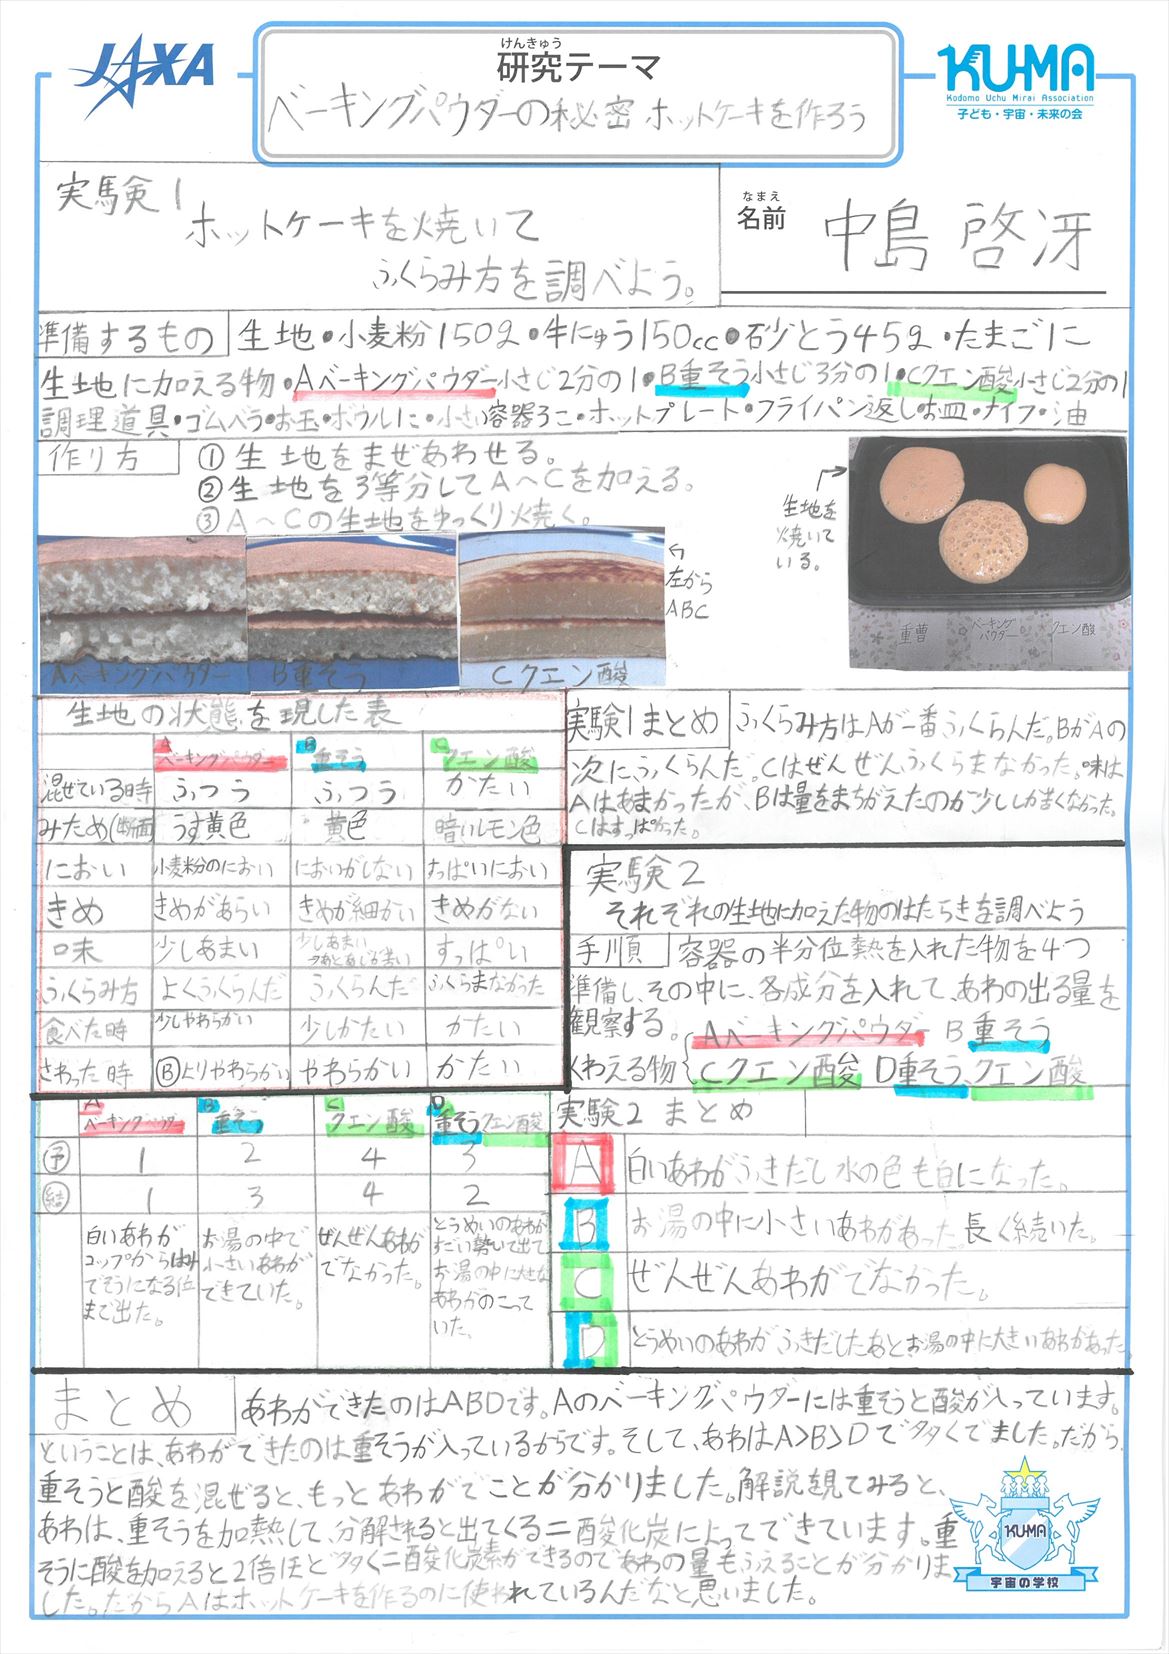 JAXA
けんきゅう
研究テーマ
ベーキングパウダーの秘密 ホットケーキを作ろう
KU-MA
Kodomo Uchu Mirai Association
子ども・宇宙・未来の会
実験1
ホットケーキを焼いて
ふくらみ方を調べよう。
なまえ
名前
中島 啓冴
準備するもの 生地・小麦粉150g・牛にゅう150cc・砂とう45g・たまご1こ
生地に加える物・Aベーキングパウダー小さじ2分の1・B重そう小さじ3分の1・Cクエン酸小さじ2分の1
調理道具・ゴムベラ・お玉・ボウル1こ・小さい容器3こ・ホットプレート・フライパン返し・お皿・ナイフ・油
作り方
①生地をまぜあわせる。
②生地を3等分してA〜Cを加える。
③A〜Cの生地をゆっくり焼く。
Aベーキングパウダー
B重そう
Cクエン酸
左から
ABC
生地を
焼いて
いる。
重曹
ベーキング
パウダー
クエン酸
生地の状態を現した表
A ベーキングパウダー B 重そう C クエン酸
混ぜている時 ふつう ふつう かたい
みため(断面) うす黄色 黄色 暗いレモン色
におい 小麦粉のにおい においがしない すっぱいにおい
きめ きめがあらい きめが細かい きめがない
口味 少しあまい 少しあまい すっぱい
ふくらみ方 よくふくらんだ ふくらんだ ふくらまなかった
食べた時 少しやわらかい 少しかたい かたい
さわった時 Ⓑよりやわらかい やわらかい かたい
実験1まとめ ふくらみ方はAが一番ふくらんだ。BがAの
次にふくらんだ。Cはぜんぜんふくらまなかった。味は
Aはあまかったが、Bは量をまちがえたのか少ししか苦くなかった。
Cはすっぱかった。
実験2
それぞれの生地に加えた物のはたらきを調べよう
手順 容器の半分位熱を入れた物を4つ
準備し、その中に、各成分を入れて、あわの出る量を
観察する。
くわえる物 Aベーキングパウダー B重そう
Cクエン酸 D重そう、クエン酸
A ベーキングパウダー B 重そう C クエン酸 D 重そう クエン酸
予 1 2 4 3
結 1 3 4 2
白いあわが
コップからはみ
でそうになる位
まで出た。
お湯の中で
小さいあわが
できていた。
ぜんぜんあわが
でなかった。
とうめいのあわが
すごい勢いで出て
お湯の中に大きな
あわがのこって
いた。
実験2 まとめ
A 白いあわがふきだし水の色も白になった。
B お湯の中に小さいあわがあった。長く続いた。
C ぜんぜんあわがでなかった。
D とうめいのあわがふきだしたあとお湯の中に大きいあわがあった。
まとめ あわができたのはABDです。Aのベーキングパウダーには重そうと酸が入っています。
ということは、あわができたのは重そうが入っているからです。そして、あわはA>B>Dで多くでました。だから
重そうと酸を混ぜると、もっとあわがでことが分かりました。解説を見てみると、
あわは、重そうを加熱して、分解されると出てくる二酸化炭によってできています。重
そうに酸を加えると2倍ほど多く二酸化炭素ができるのであわの量もふえることが分かりま
した。だからAはホットケーキを作るのに使われているんだなと思いました。
KU-MA
宇宙の学校